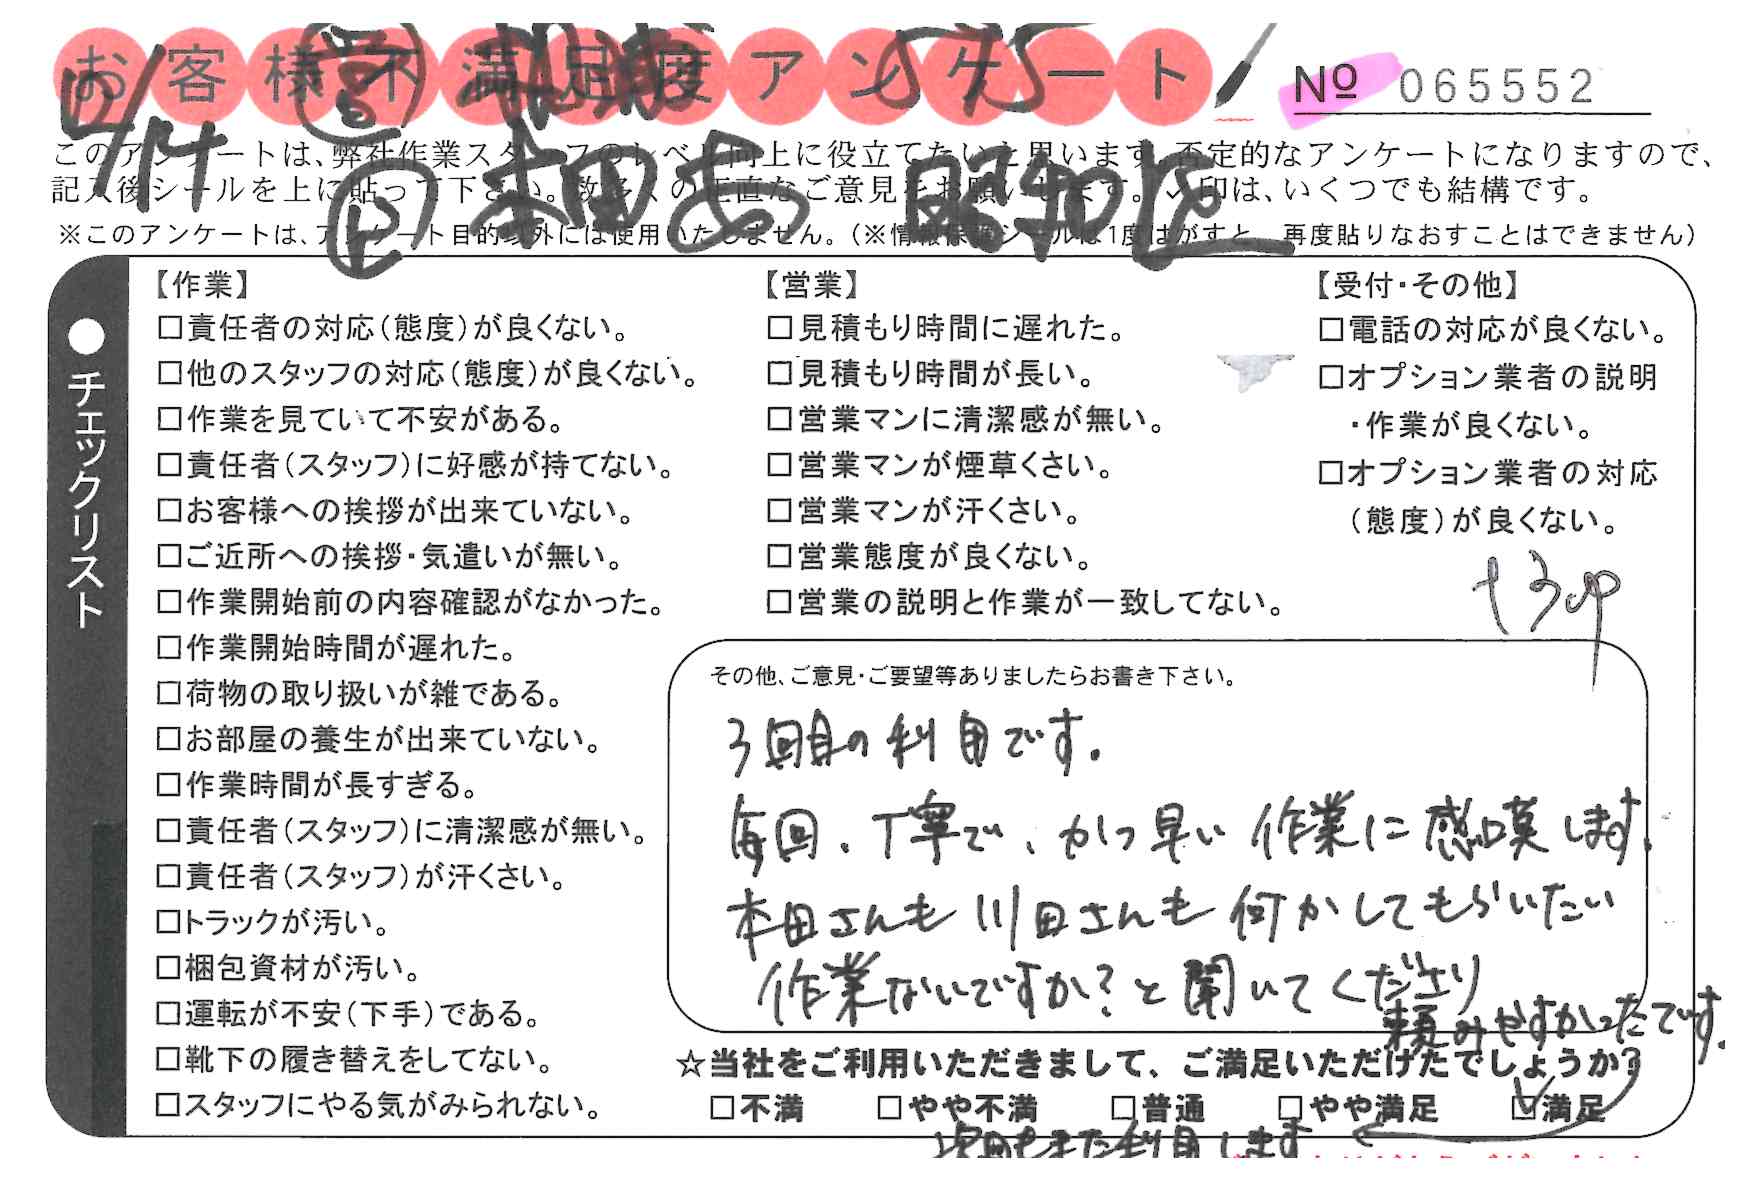 お客様不満足度アンケート
№ 065552
12/14
このアンケートは、弊社作業スタッフのレベル向上に役立てたいと思います。否定的なアンケートになりますので、
記入後シールを上に貼って下さい。数多くの正直なご意見をお願いします。✓印は、いくつでも結構です。
※このアンケートは、アンケート目的以外には使用いたしません。（※情報保護シールは1度はがすと、再度貼りなおすことはできません）
本田
昭和
●チェックリスト
【作業】
□責任者の対応（態度）が良くない。
□他のスタッフの対応（態度）が良くない。
□作業を見ていて不安がある。
□責任者（スタッフ）に好感が持てない。
□お客様への挨拶が出来ていない。
□ご近所への挨拶・気遣いが無い。
□作業開始前の内容確認がなかった。
□作業開始時間が遅れた。
□荷物の取り扱いが雑である。
□お部屋の養生が出来ていない。
□作業時間が長すぎる。
□責任者（スタッフ）に清潔感が無い。
□責任者（スタッフ）が汗くさい。
□トラックが汚い。
□梱包資材が汚い。
□運転が不安（下手）である。
□靴下の履き替えをしてない。
□スタッフにやる気がみられない。
【営業】
□見積もり時間に遅れた。
□見積もり時間が長い。
□営業マンに清潔感が無い。
□営業マンが煙草くさい。
□営業マンが汗くさい。
□営業態度が良くない。
□営業の説明と作業が一致してない。
【受付・その他】
□電話の対応が良くない。
□オプション業者の説明
・作業が良くない。
□オプション業者の対応
（態度）が良くない。
+3up
その他、ご意見・ご要望等ありましたらお書き下さい。
3回目の利用です。
毎回、丁寧で、かつ早い作業に感嘆します。
本田さんも川田さんも何かしてもらいたい
作業ないですか？と聞いてくださり
頼みやすかったです。
☆当社をご利用いただきまして、ご満足いただけたでしょうか？
□不満 □やや不満 □普通 □やや満足 ☑満足
次回もまた利用します